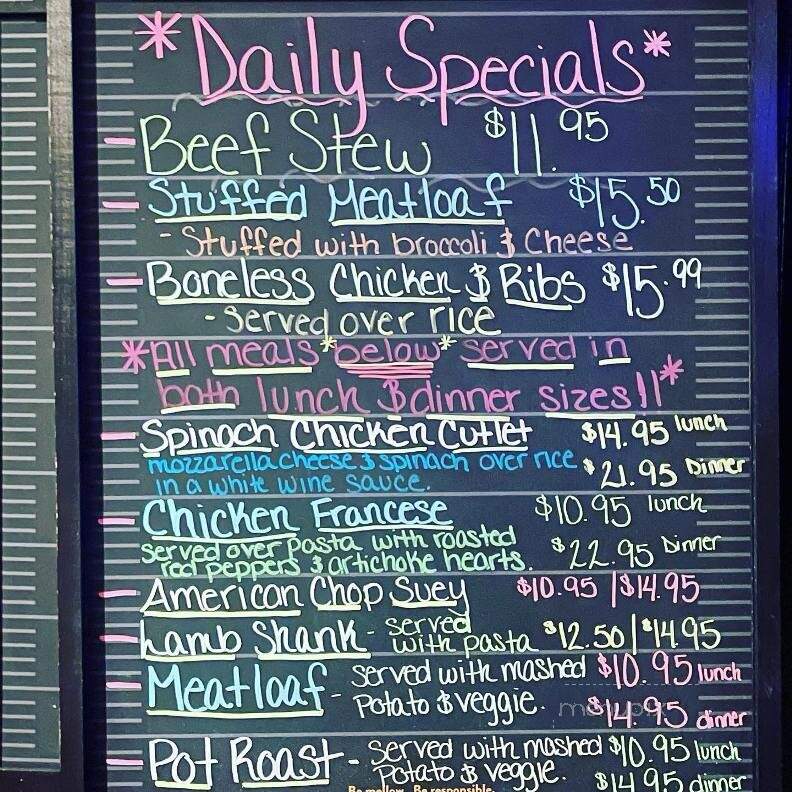 *Daily Specials*
- Beef Stew $11.95
- Stuffed Meatloaf $15.50
- Stuffed with broccoli & Cheese
- Boneless Chicken & Ribs $15.99
- Served over rice
*All meals *below* served in
both lunch & dinner sizes!!*
- Spinach Chicken Cutlet $14.95 lunch
mozzarella cheese & spinach over rice $21.95 Dinner
in a white wine sauce.
- Chicken Francese $10.95 lunch
served over pasta with roasted $22.95 Dinner
red peppers & artichoke hearts.
- American Chop Suey $10.95 | $14.95
- Lamb Shank - served
with pasta $12.50 | $14.95
- Meatloaf - served with mashed $10.95 lunch
Potato & veggie. $14.95 dinner
- Pot Roast - Served with mashed $10.95 lunch
Potato & veggie. $14.95 dinner
Be mellow. Be responsible.